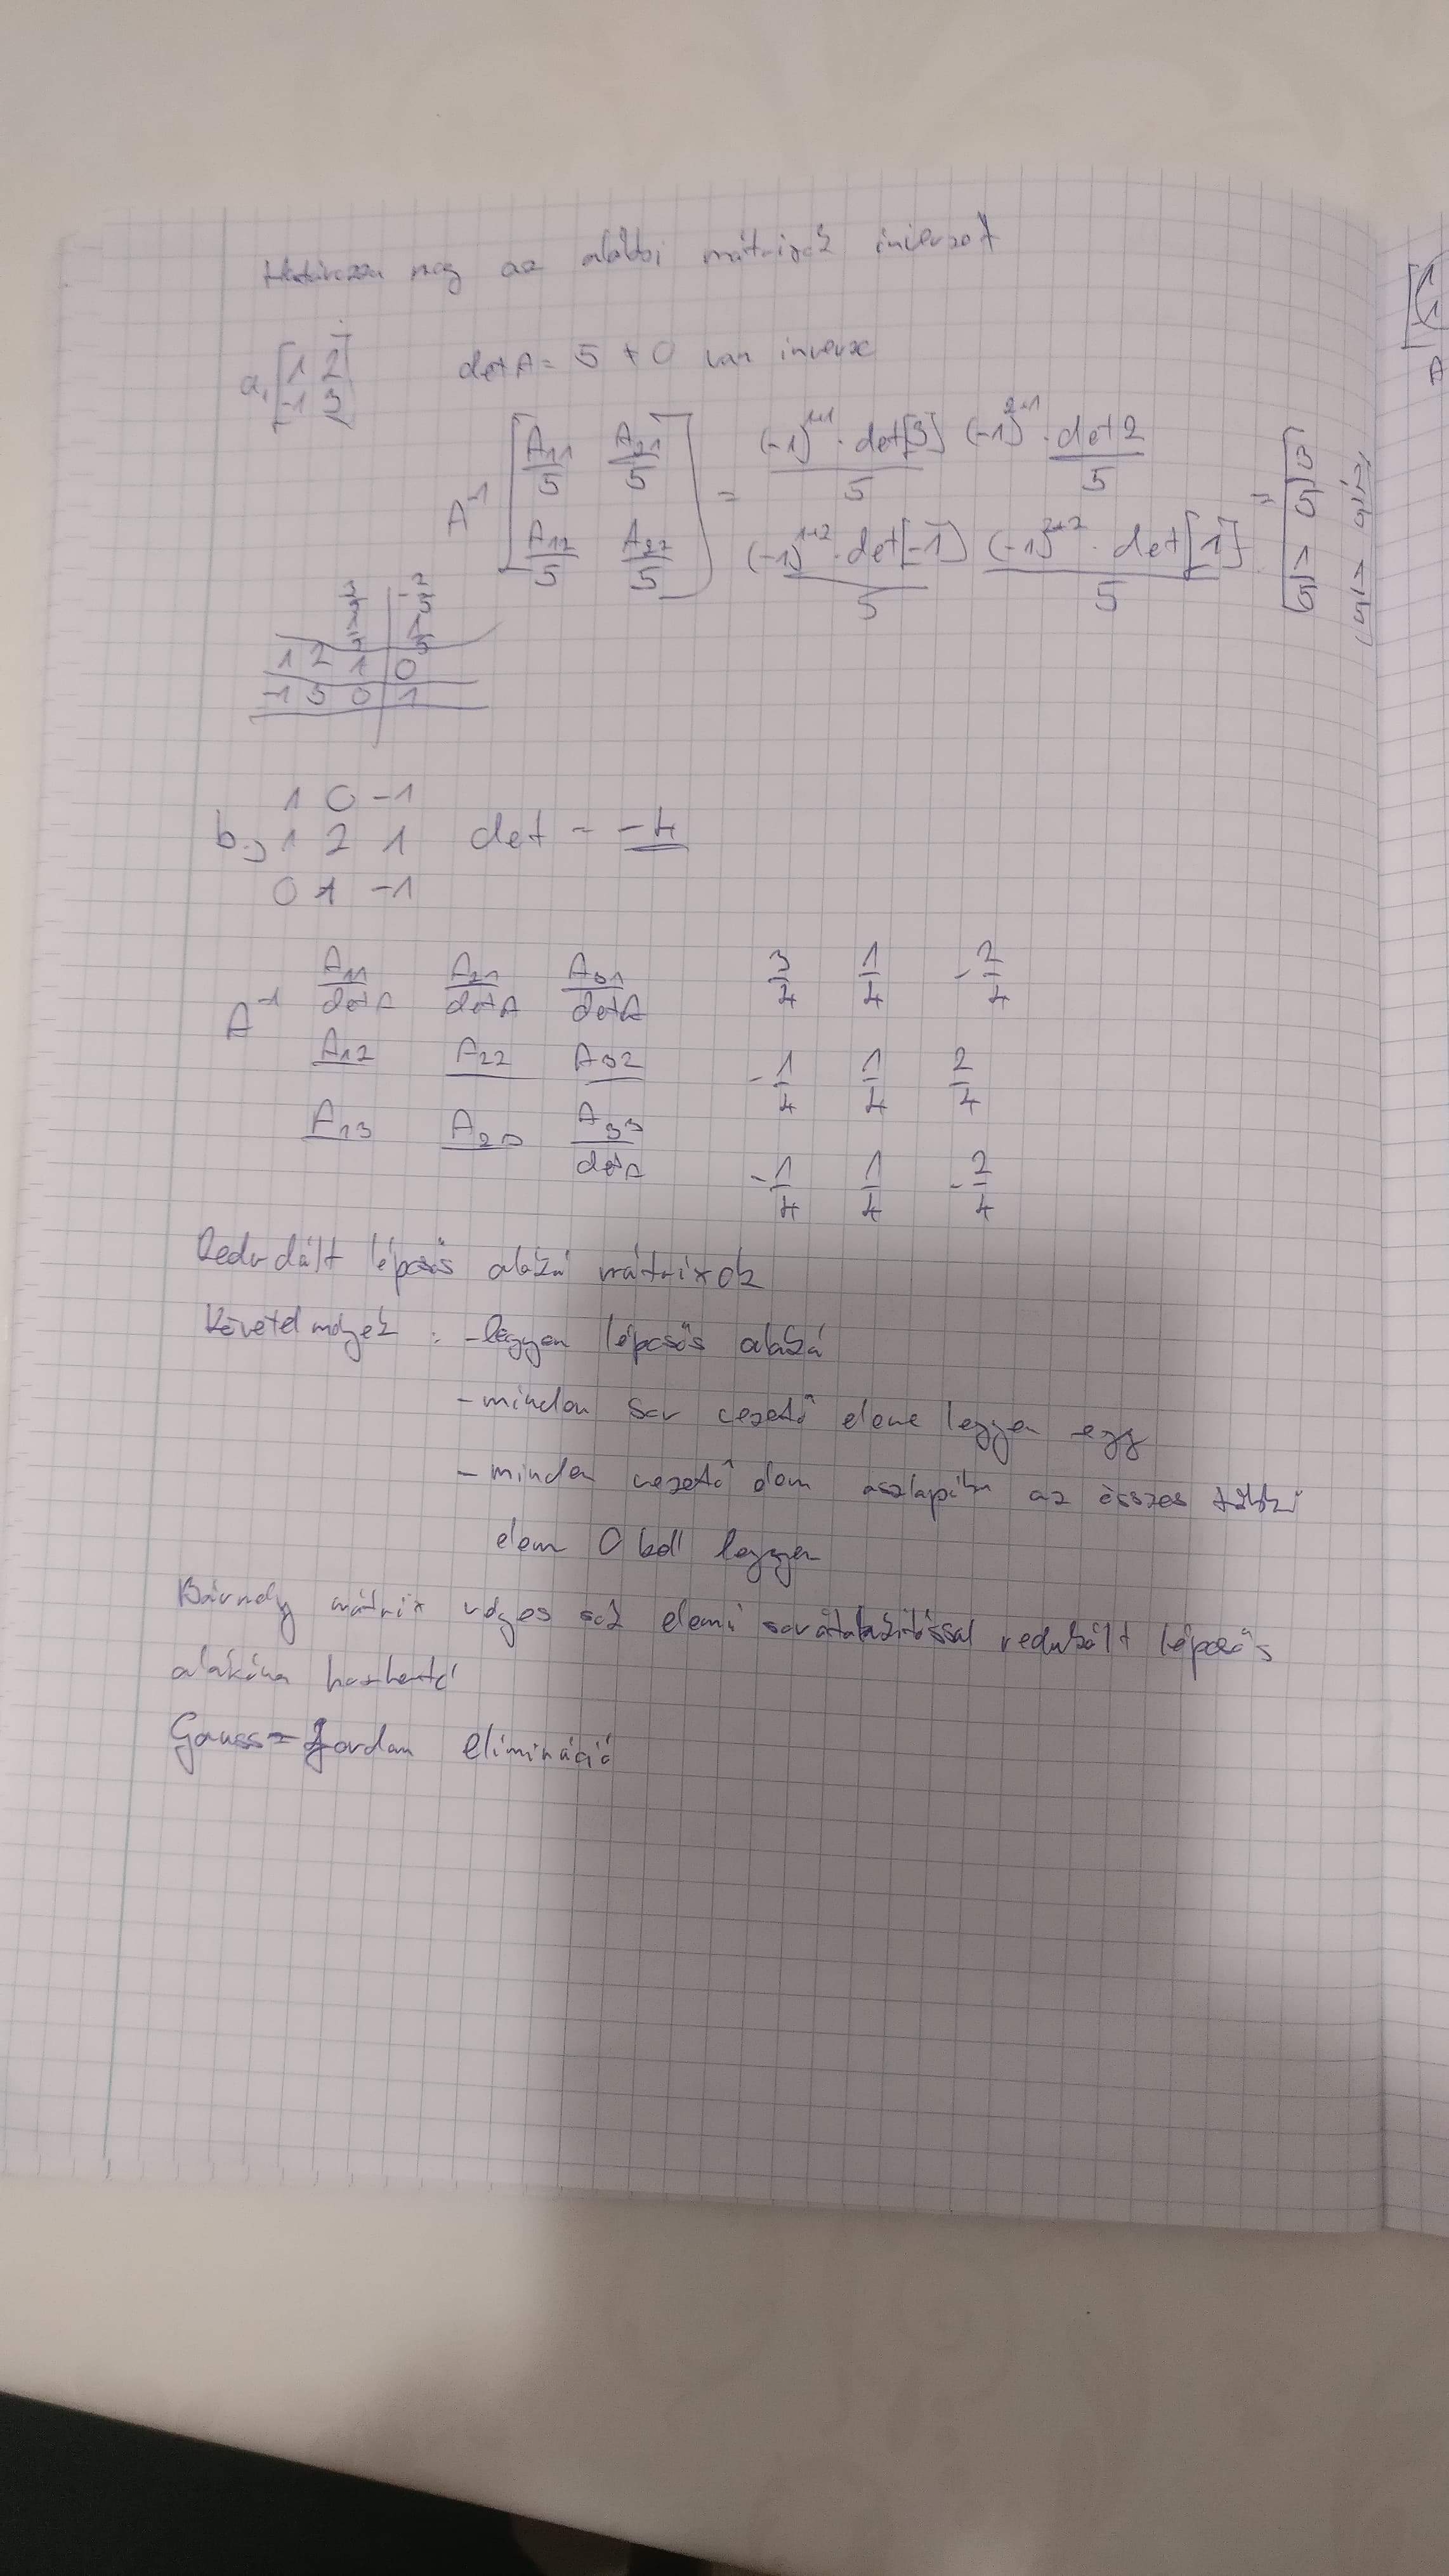 Határozza meg az alábbi mátrixok inverzét
a, [1 2
-1 3]
det A = 5 ≠ 0 van inverze
A⁻¹ [A11/5 A21/5
A12/5 A22/5]
= (-1)¹⁺¹ · det[3] / 5 (-1)²⁺¹ · det 2 / 5
(-1)¹⁺² · det[-1] / 5 (-1)²⁺² · det[1] / 5
= [3/5
1/5 1/5
3/5 -2/5
1/5 1/5
1 2 1 0
-1 3 0 1
b, 1 0 -1
1 2 1 det = -4
0 1 -1
A⁻¹ A11/detA A21/detA A31/detA 3/4 1/4 -2/4
A12 A22 A32 -1/4 1/4 2/4
A13 A23 A33/detA -1/4 1/4 -2/4
Redukált lépcsős alakú mátrixok
Követelmények : - legyen lépcsős alakú
- minden sor vezető eleme legyen egy
- minden vezető elem oszlopában az összes többi
elem 0 kell legyen
Bármely mátrix véges sok elemi sorátalakítással redukált lépcsős
alakúra hozható
Gauss-Jordan elimináció